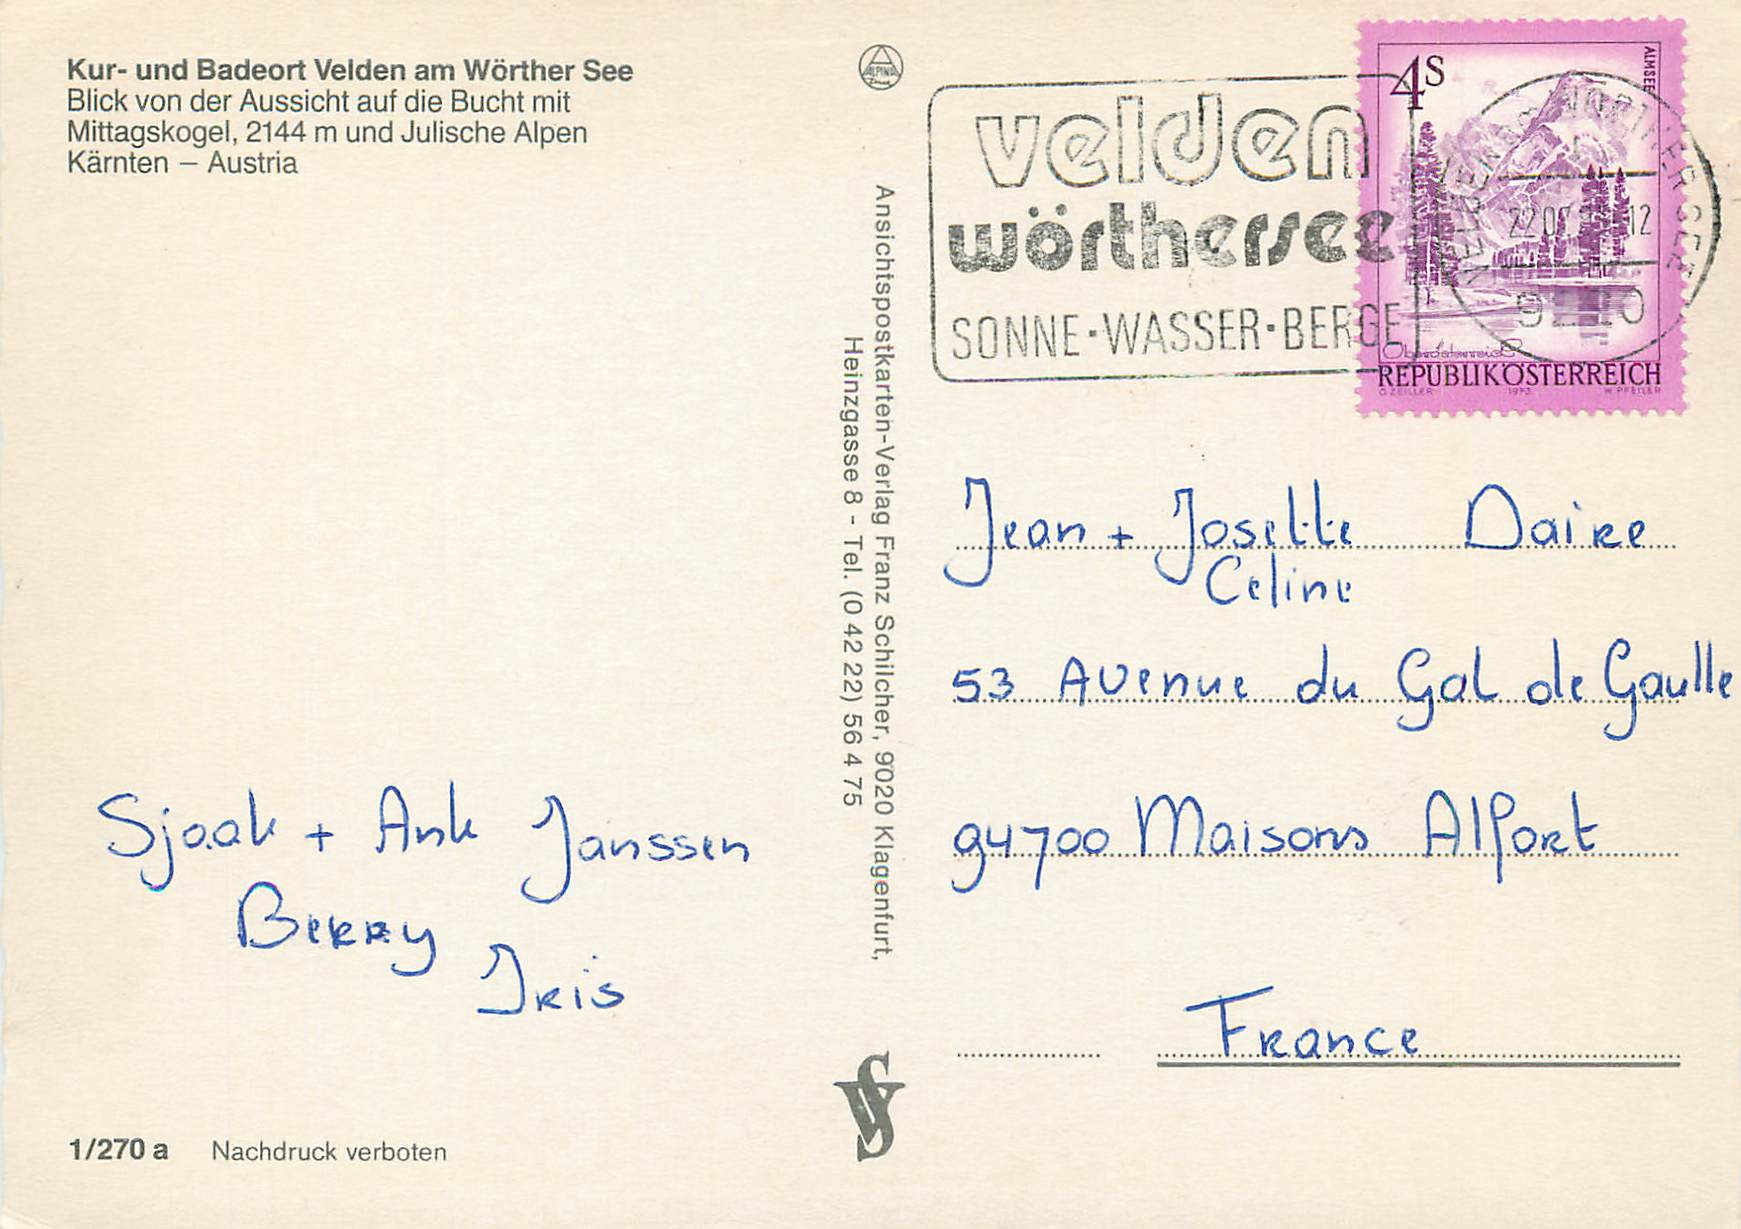 Kur- und Badeort Velden am Wörther See
Blick von der Aussicht auf die Bucht mit
Mittagskogel, 2144 m und Julische Alpen
Kärnten – Austria
Sjaak + Ank Janssen
Berry
Iris
1/270 a Nachdruck verboten
ALPINA
Ansichtspostkarten-Verlag Franz Schilcher, 9020 Klagenfurt,
Heinzgasse 8 - Tel. (0 42 22) 56 4 75
velden
wörthersee
SONNE·WASSER·BERGE
4S
ALMSEE
Oberösterreich
REPUBLIK ÖSTERREICH
O ZEILLER 1973 W PFEILER
VELDEN AM WÖRTHER SEE
9220
Jean + Josette Daire
Celine
53 Avenue du Gal de Gaulle
94700 Maisons Alfort
France